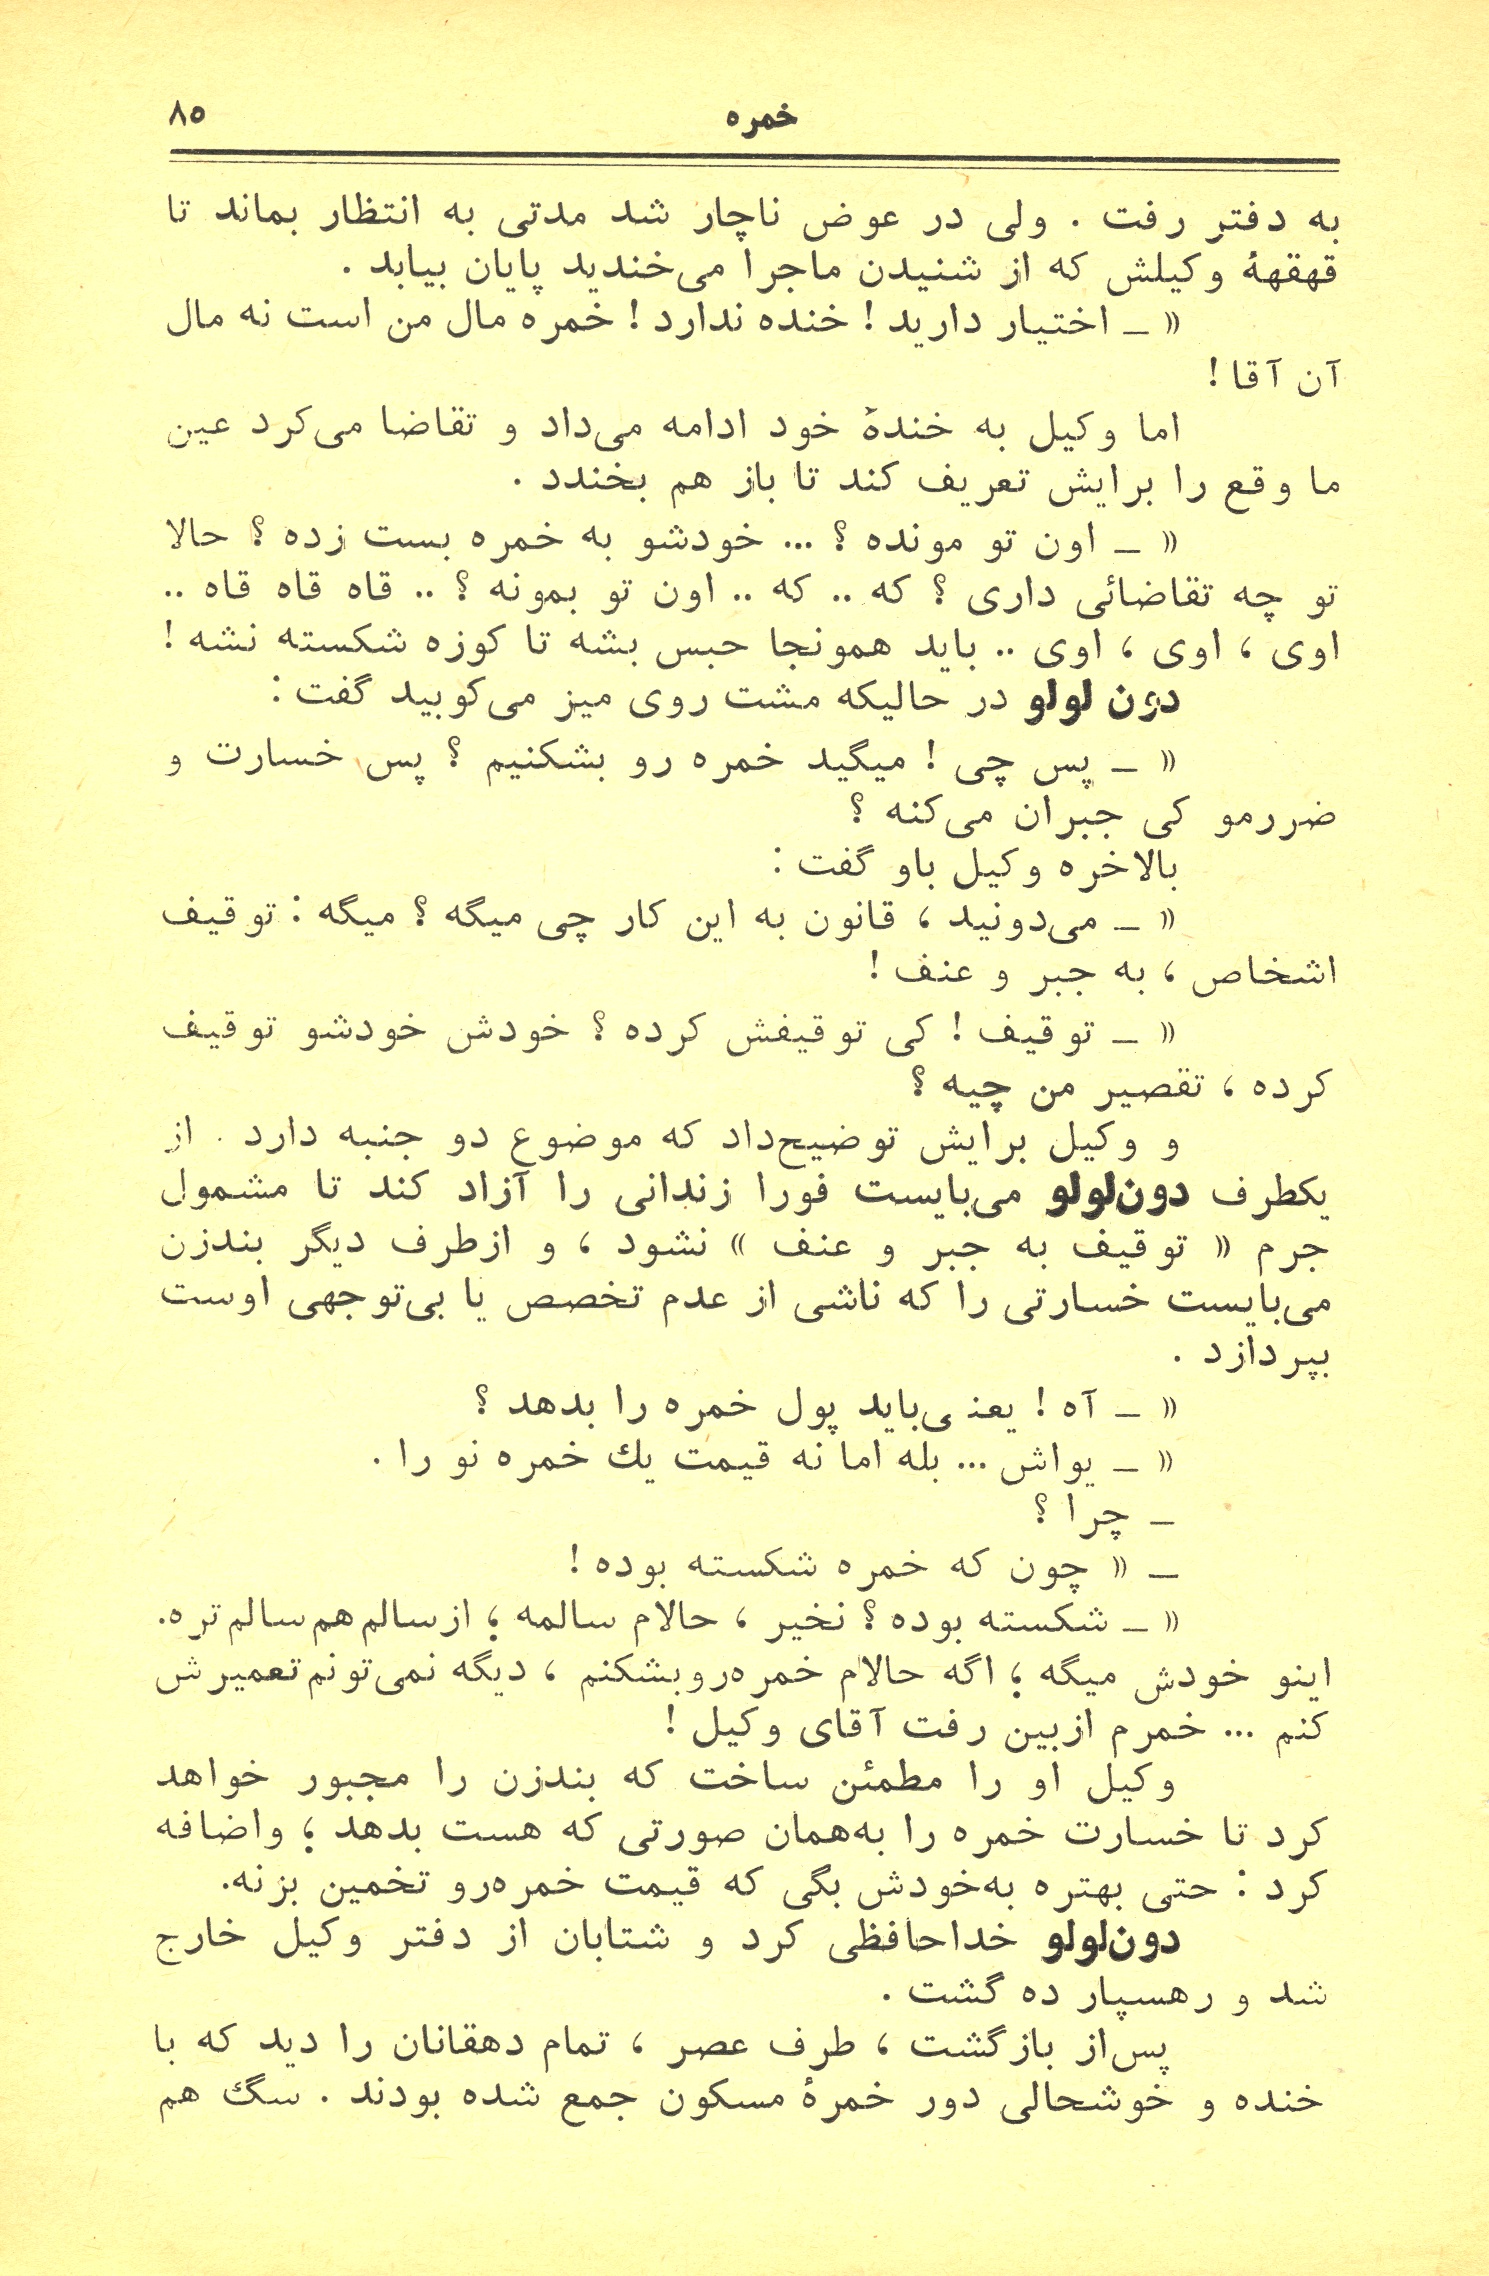 خمره ۸۵
به دفتر رفت . ولی در عوض ناچار شد مدتی به انتظار بماند تا
قهقههٔ وکیلش که از شنیدن ماجرا می‌خندید پایان بیابد .
« ـ اختیار دارید ! خنده ندارد ! خمره مال من است نه مال
آن آقا !
اما وکیل به خندهٔ خود ادامه می‌داد و تقاضا می‌کرد عین
ما وقع را برایش تعریف کند تا باز هم بخندد .
« ـ اون تو مونده ؟ ... خودشو به خمره بست زده ؟ حالا
تو چه تقاضائی داری ؟ که .. که .. اون تو بمونه ؟ .. قاه قاه قاه ..
اوی ، اوی ، اوی .. باید همونجا حبس بشه تا کوزه شکسته نشه !
دون لولو در حالیکه مشت روی میز می‌کوبید گفت :
« ـ پس چی ! میگید خمره رو بشکنیم ؟ پس خسارت و
ضررمو کی جبران می‌کنه ؟
بالاخره وکیل باو گفت :
« ـ می‌دونید ، قانون به این کار چی میگه ؟ میگه : توقیف
اشخاص ، به جبر و عنف !
« ـ توقیف ! کی توقیفش کرده ؟ خودش خودشو توقیف
کرده ، تقصیر من چیه ؟
و وکیل برایش توضیح‌داد که موضوع دو جنبه دارد . از
یکطرف دون‌لولو می‌بایست فورا زندانی را آزاد کند تا مشمول
جرم « توقیف به جبر و عنف » نشود ، و ازطرف دیگر بندزن
می‌بایست خسارتی را که ناشی از عدم تخصص یا بی‌توجهی اوست
بپردازد .
« ـ آه ! یعنی‌باید پول خمره را بدهد ؟
« ـ یواش ... بله اما نه قیمت یك خمره نو را .
ـ چرا ؟
ـ « چون که خمره شکسته بوده !
« ـ شکسته بوده ؟ نخیر ، حالام سالمه ؛ ازسالم‌هم‌سالم‌تره.
اینو خودش میگه ؛ اگه حالام خمره‌روبشکنم ، دیگه نمی‌تونم‌تعمیرش
کنم ... خمرم ازبین رفت آقای وکیل !
وکیل او را مطمئن ساخت که بندزن را مجبور خواهد
کرد تا خسارت خمره را به‌همان صورتی که هست بدهد ؛ واضافه
کرد : حتی بهتره به‌خودش بگی که قیمت خمره‌رو تخمین بزنه.
دون‌لولو خداحافظی کرد و شتابان از دفتر وکیل خارج
شد و رهسپار ده گشت .
پس‌از بازگشت ، طرف عصر ، تمام دهقانان را دید که با
خنده و خوشحالی دور خمرهٔ مسکون جمع شده بودند . سگ هم